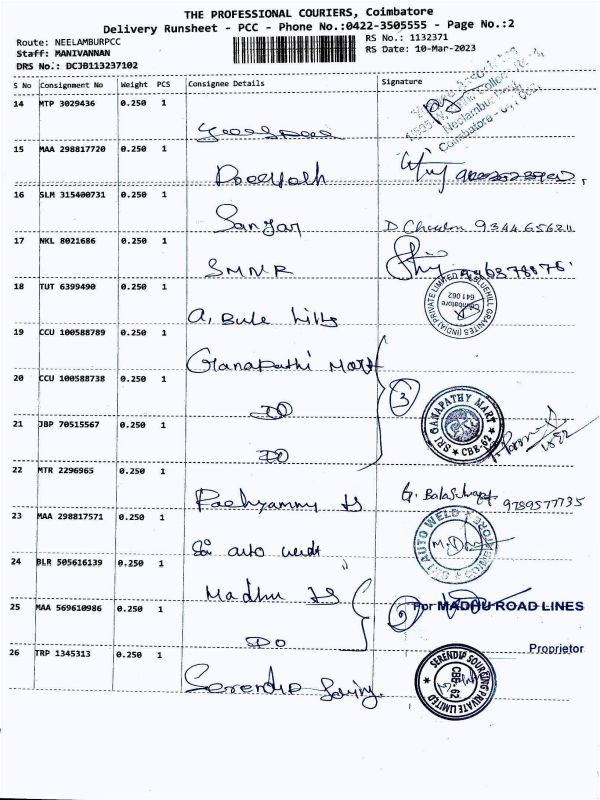 THE PROFESSIONAL COURIERS, Coimbatore
Delivery Runsheet - PCC - Phone No.:0422-3505555 - Page No.:2
Route: NEELAMBURPCC
RS No.: 1132371
Staff: MANIVANNAN
RS Date: 10-Mar-2023
DRS No.: DCJB113237102
S No Consignment No Weight PCS Consignee Details Signature
14 MTP 3029436 0.250 1
Neelambur
Coimbatore
15 MAA 298817720 0.250 1
16 SLM 315400731 0.250 1
Sanjay
17 NKL 8021686 0.250 1
SMNR
18 TUT 6399490 0.250 1
A. Bule hills
BLUEHILL GRANITES (INDIA) PRIVATE LIMITED
Coimbatore
641 062
19 CCU 100588789 0.250 1
Ganapathi Mart
20 CCU 100588738 0.250 1
DO
3
21 JBP 70515567 0.250 1
DO
SRI GANAPATHY MART
CBE-62
22 MTR 2296965 0.250 1
G. 9789577735
23 MAA 298817571 0.250 1
Sri auto weldt
SRI AUTO WELD
24 BLR 505616139 0.250 1
Madhu
25 MAA 569610986 0.250 1
DO
2
For MADHU ROAD LINES
Proprietor
26 TRP 1345313 0.250 1
Serendip
SERENDIP SOURCING PRIVATE LIMITED
CBE-62